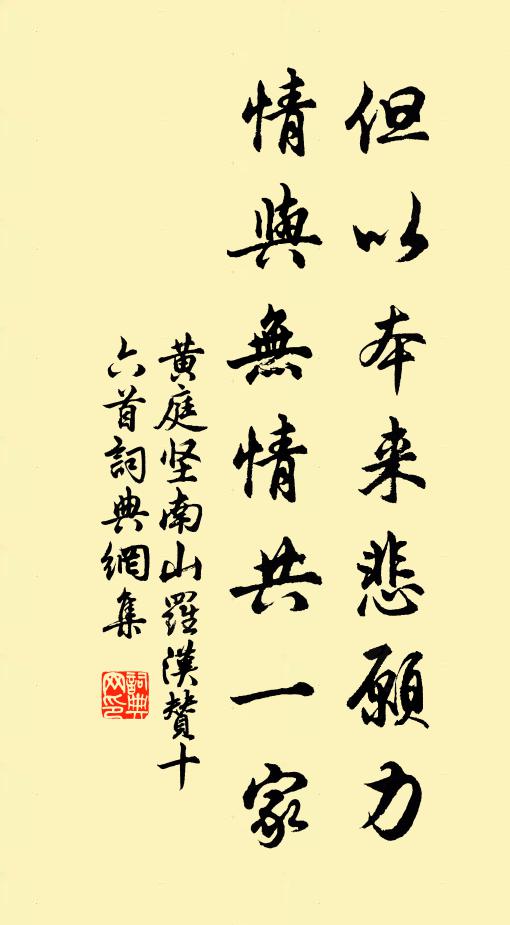 但以本来悲願力
情與無情共一家
黄庭坚南山羅漢贊十
六首詞典網集
詞典
网印